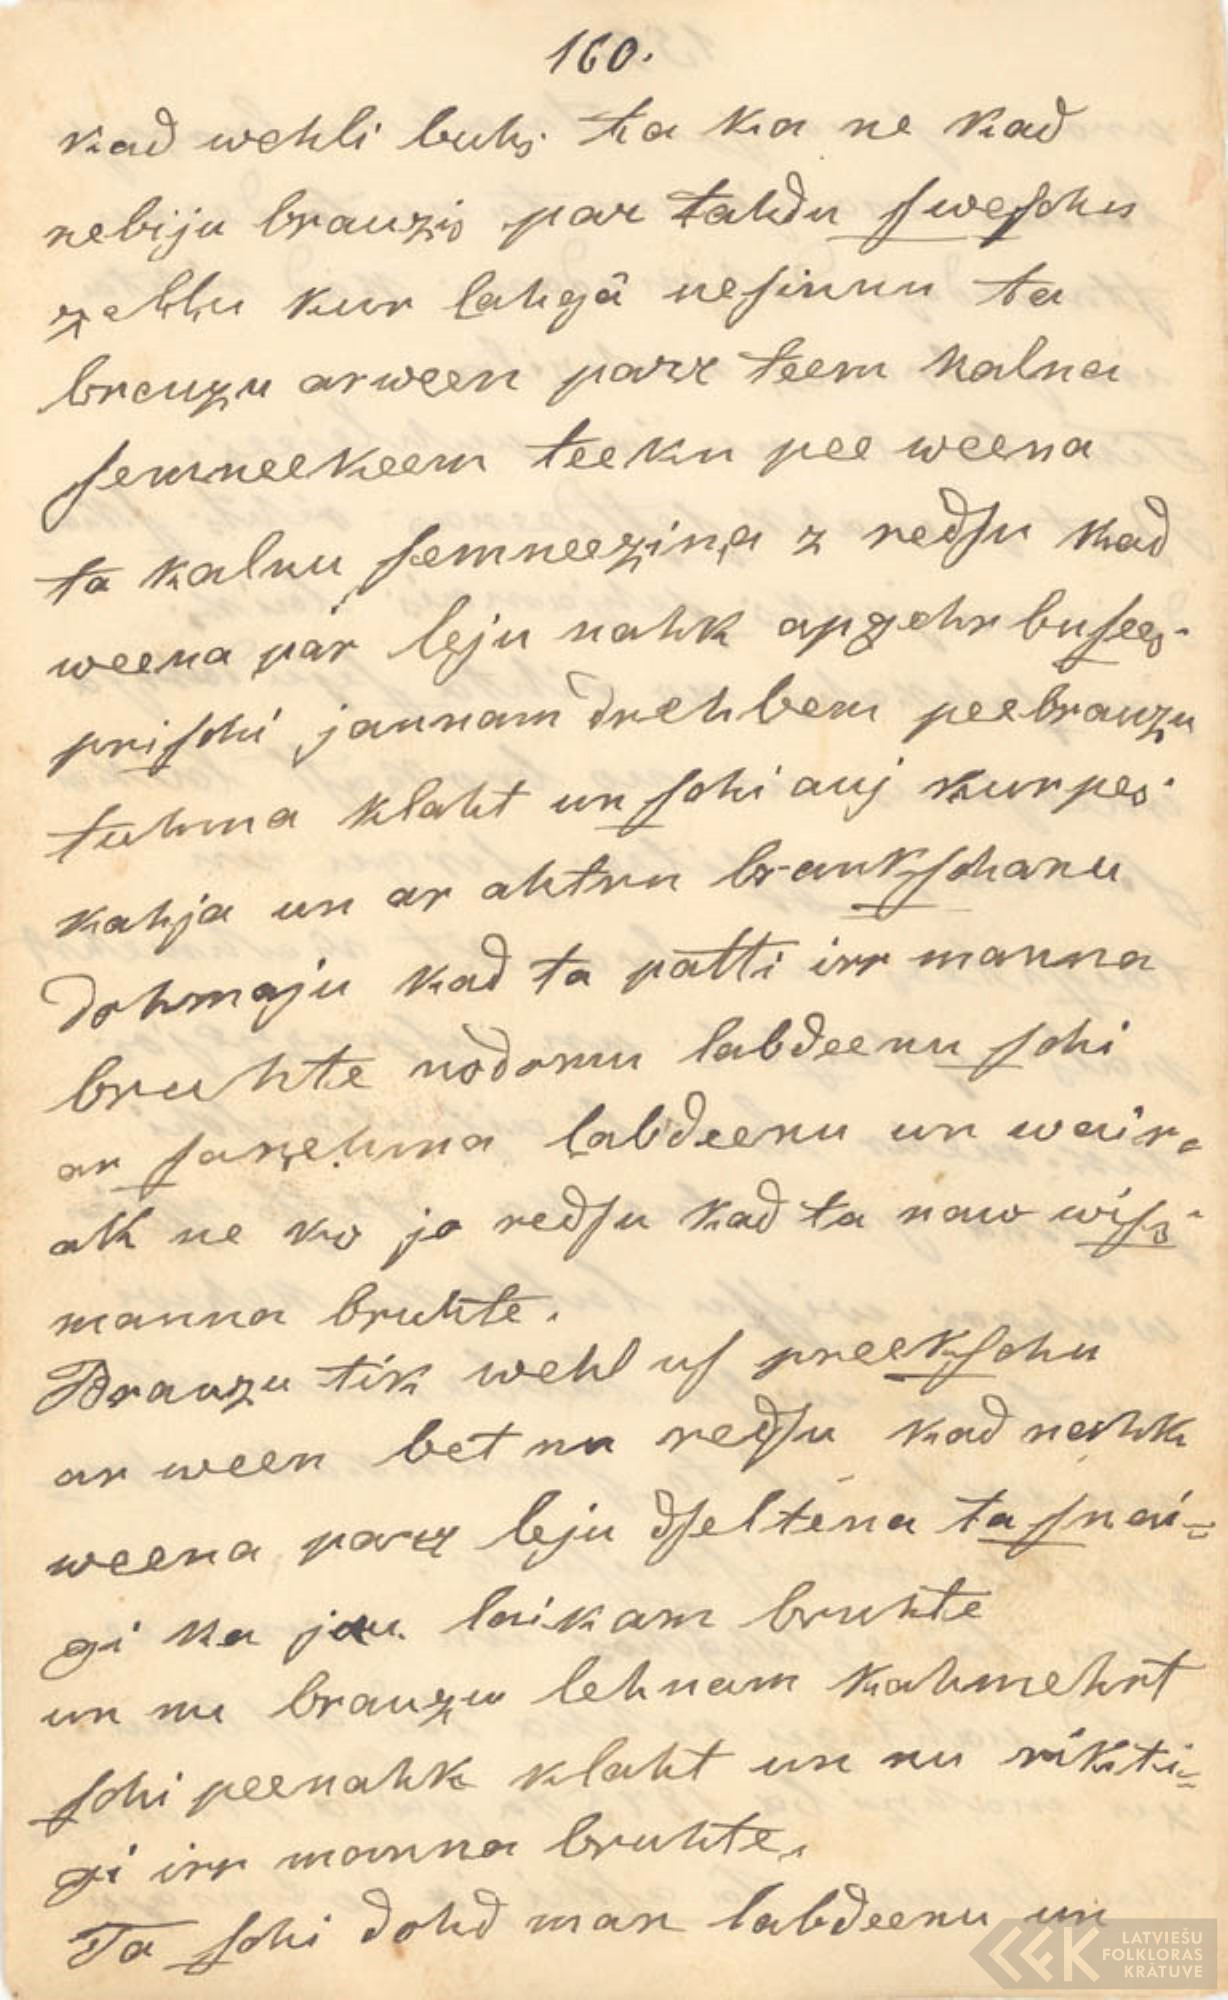 160.
kad wehli buhs ta ka ne kad
nebiju brauzis par tahdu sweschu
zellu kur lahgâ nesinnu ta
brauzu arween parr teem kalna
semneekeem teeku pee weena
ta kalnu semneezina z redsu kad
weena par leju nahk apgehrbusees
prischi jaunam drehbem peebrauzu
tuhma klaht un schi auj kurpes
kahja un ar ahtru braukschanu
dohmaju kad ta patti irr manna
bruhte nodomu labdeenu schi
ar sanehma labdeenu un wair-
ak ne ko jo redsu kad ta naw wiss
manna bruhte.
Brauzu tik wehl us preekschu
ar ween bet nu redsu kad nahk
weena parr leju dseltena ta snai-
gi ka jau laikam bruhte
un nu brauzu lehnam kahmehrt
schi peenahk klaht un nu rikti-
gi irr manna bruhte.
Ta schi dohd man labdeenu un
LATVIEŠU
FOLKLORAS
KRĀTUVE